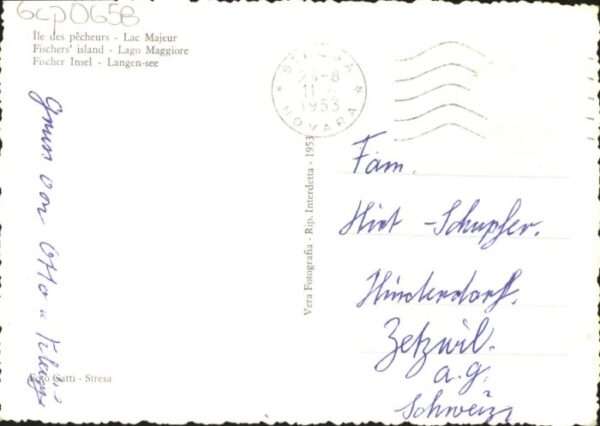 6cp065B
Ile des pêcheurs - Lac Majeur
Fischers' island - Lago Maggiore
Fischer Insel - Langen-see
STRESA
23-8
11
1953
NOVARA
Gruss von Otto u
Gatti - Stresa
Vera Fotografia - Rip. Interdetta - 1953
Fam.
Hirt - Schupfer.
Hinterdorf.
Zetzwil.
a.g.
Schweiz